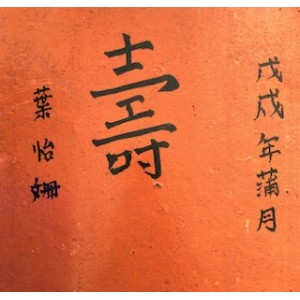 戊戌年蒲月
壽
葉怡姍